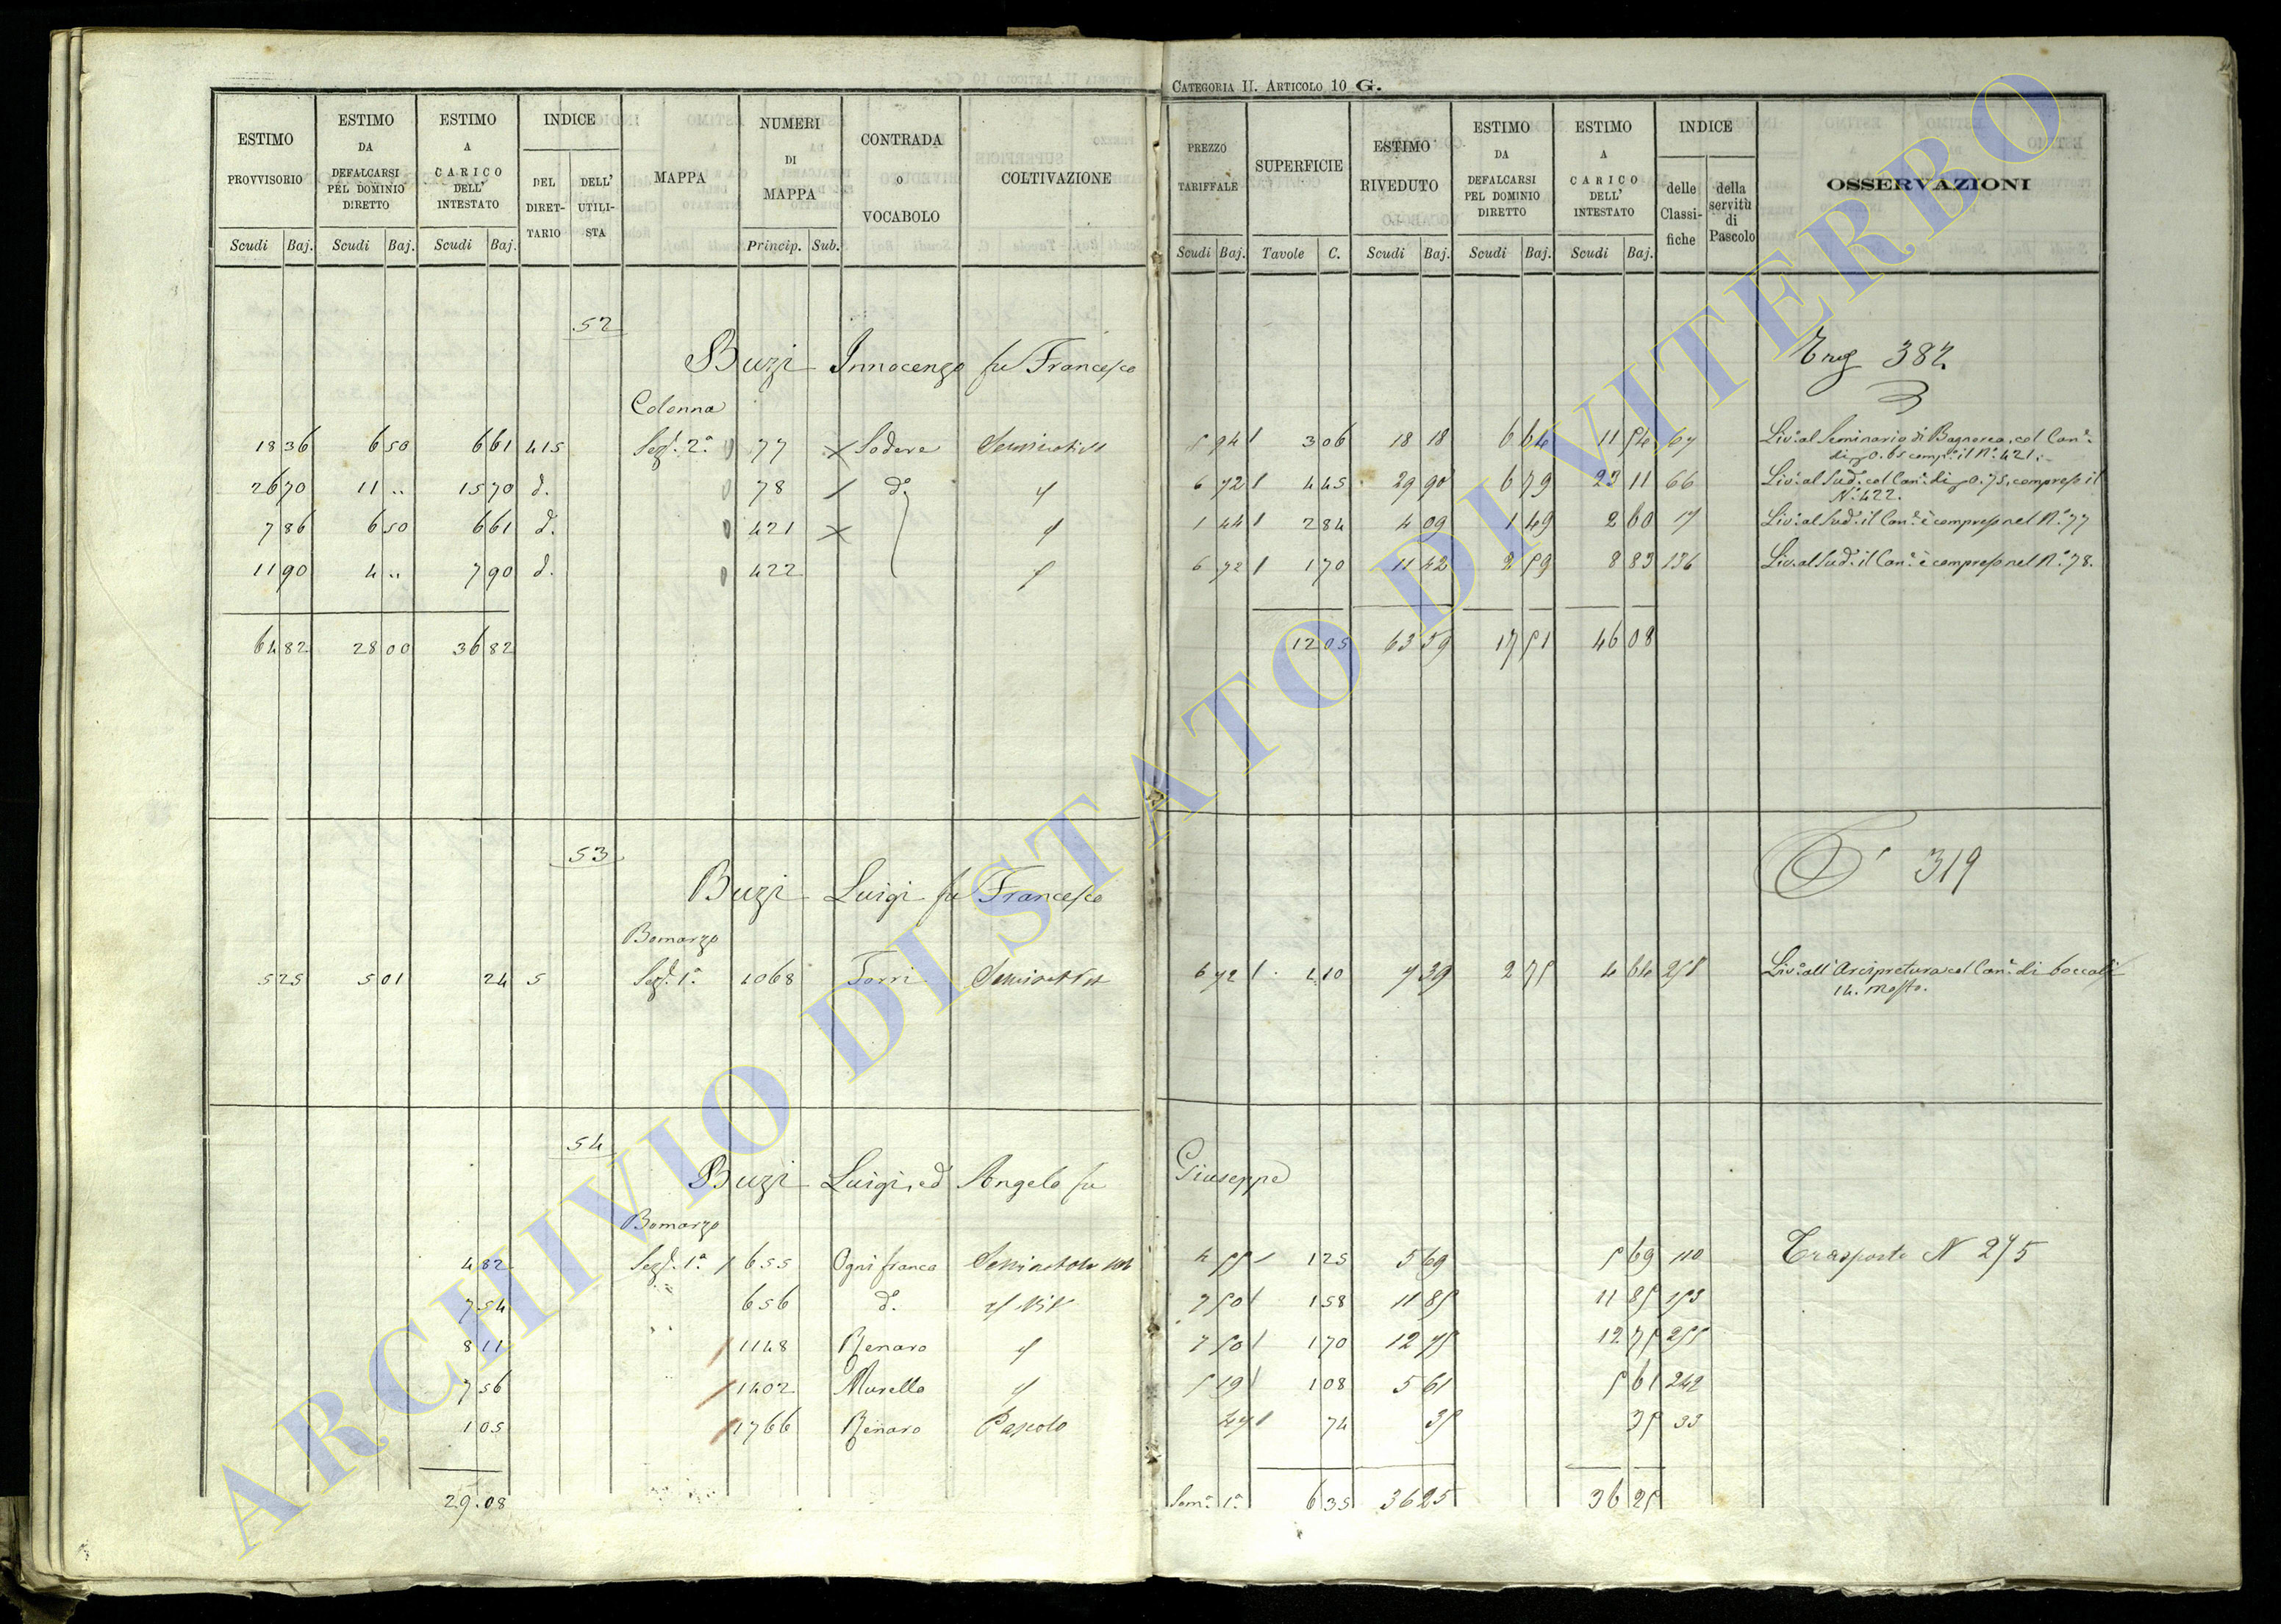 CATEGORIA II. ARTICOLO 10 G.
ESTIMO PROVVISORIO
ESTIMO DA DEFALCARSI PEL DOMINIO DIRETTO
ESTIMO A CARICO DELL' INTESTATO
INDICE
DEL DIRETTARIO
DELL' UTILISTA
MAPPA
NUMERI DI MAPPA
CONTRADA O VOCABOLO
COLTIVAZIONE
PREZZO TARIFFALE
SUPERFICIE
ESTIMO RIVEDUTO
ESTIMO DA DEFALCARSI PEL DOMINIO DIRETTO
ESTIMO A CARICO DELL' INTESTATO
INDICE
delle Classifiche
della servitù di Pascolo
OSSERVAZIONI
Scudi Baj. Scudi Baj. Scudi Baj. Princip. Sub. Scudi Baj. Tavole C. Scudi Baj. Scudi Baj. Scudi Baj.
52
Buzi Innocenzo fu Francesco 382
Colonna
18 36 6 50 6 61 415 Sez. 2ª 77 Sodere 94 3 06 18 18 67 Liv. al Seminario di Bagnorea, col Can.
il N. 421.
26 70 11 " 15 70 d. 78 d. 6 72 4 45 29 90 6 79 23 11 66 Liv. al Sud. col Can. di 0.75, compreso il
N. 422.
7 86 6 50 6 61 d. 421 1 44 2 84 4 09 1 49 2 60 17 Liv. al Sud. il Can. è compreso nel N. 77
11 90 4 " 7 90 d. 422 6 72 1 70 11 42 2 59 8 83 136 Liv. al Sud. il Can. è compreso nel N. 78.
64 82 28 00 36 82 12 05 63 59 17 51 46 08
53
Buzi Luigi fu Francesco 319
Bomarzo
5 25 5 01 24 5 Sez. 1ª 1068 Torri 6 72 1 10 7 39 2 75 4 64 258 Liv. all' Arcipretura col Can. di boccali
14. Mosto.
54
Buzi Luigi, ed Angelo fu Giuseppe
Bomarzo
4 82 Sez. 1ª 655 Ognifranca 4 55 1 25 5 69 5 69 110 Trasporto N 275
7 54 656 d. 7 50 1 58 11 85 11 85 153
8 11 1148 Renaro 7 50 1 70 12 75 12 75 255
7 56 1402 Murella 5 19 1 08 5 61 5 61 242
1 05 1766 Renaro Pascolo 47 74 35 35 33
29.08 Som. 1ª 6 35 36 25 36 25
ARCHIVIO DI STATO DI VITERBO